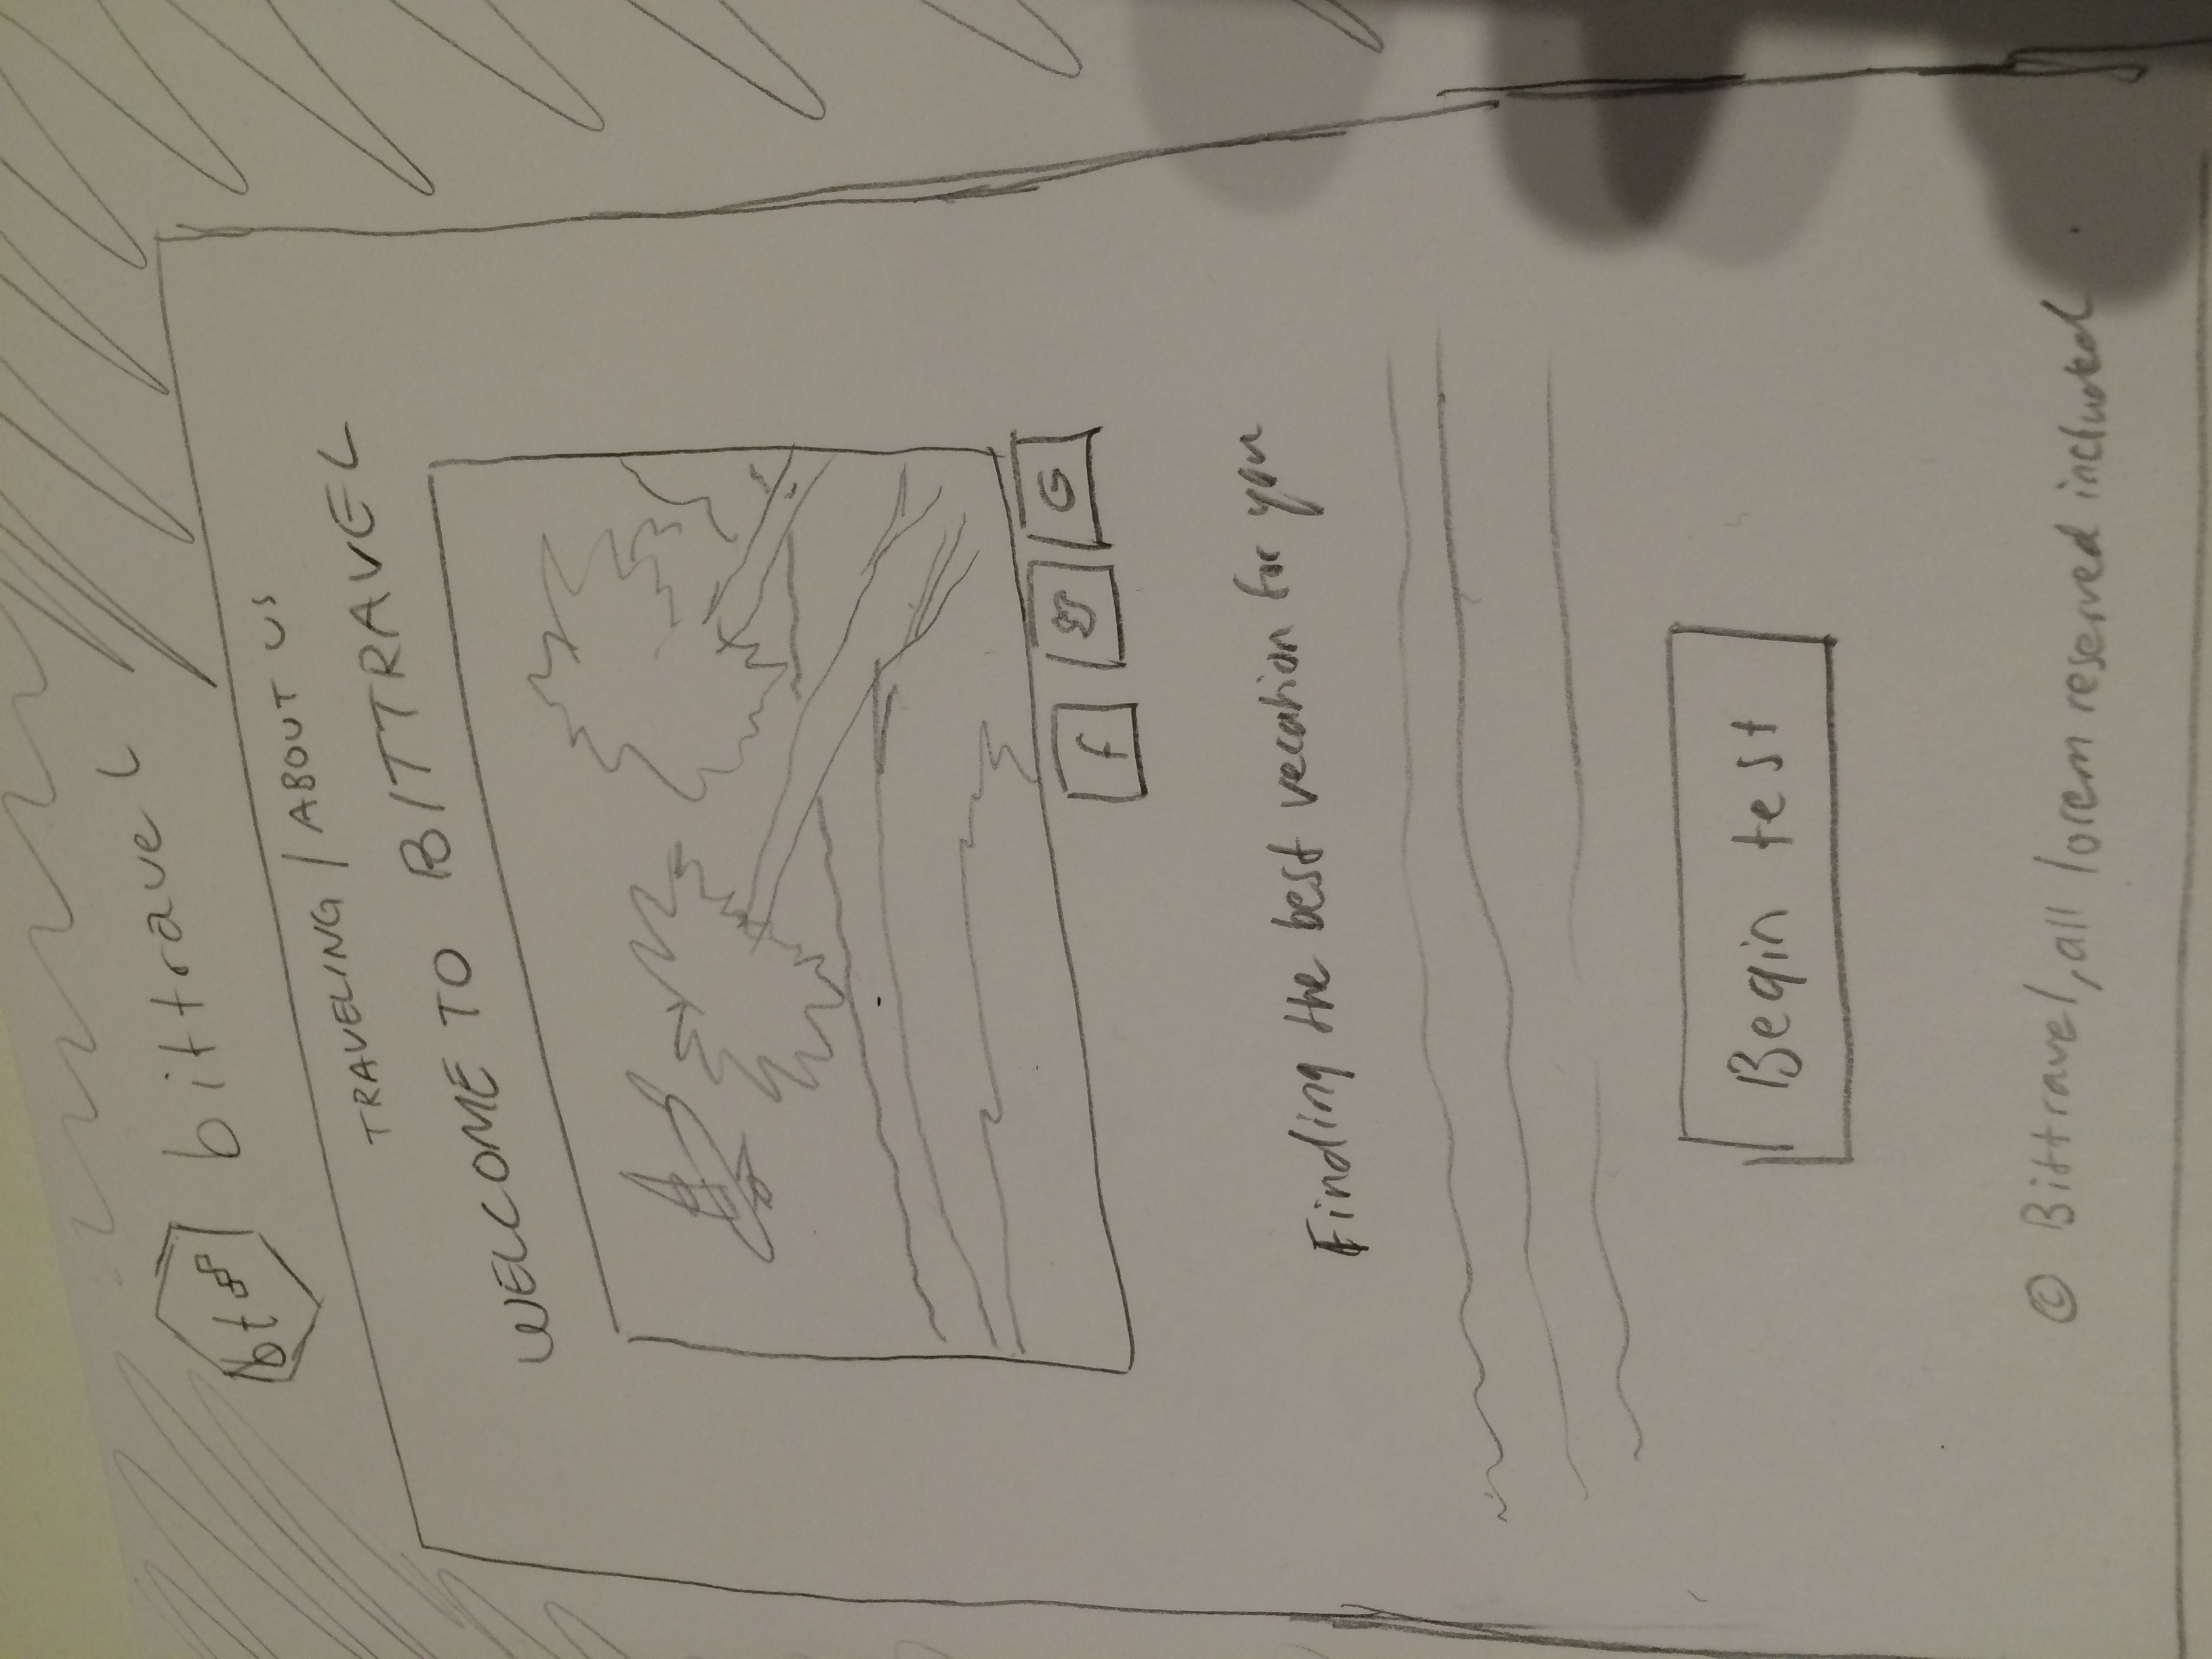 bt
bittravel
TRAVELING / ABOUT US
WELCOME TO BITTRAVEL
f
G
Finding the best vecation for you
Begin test
© Bittravel, all lorem reserved included.